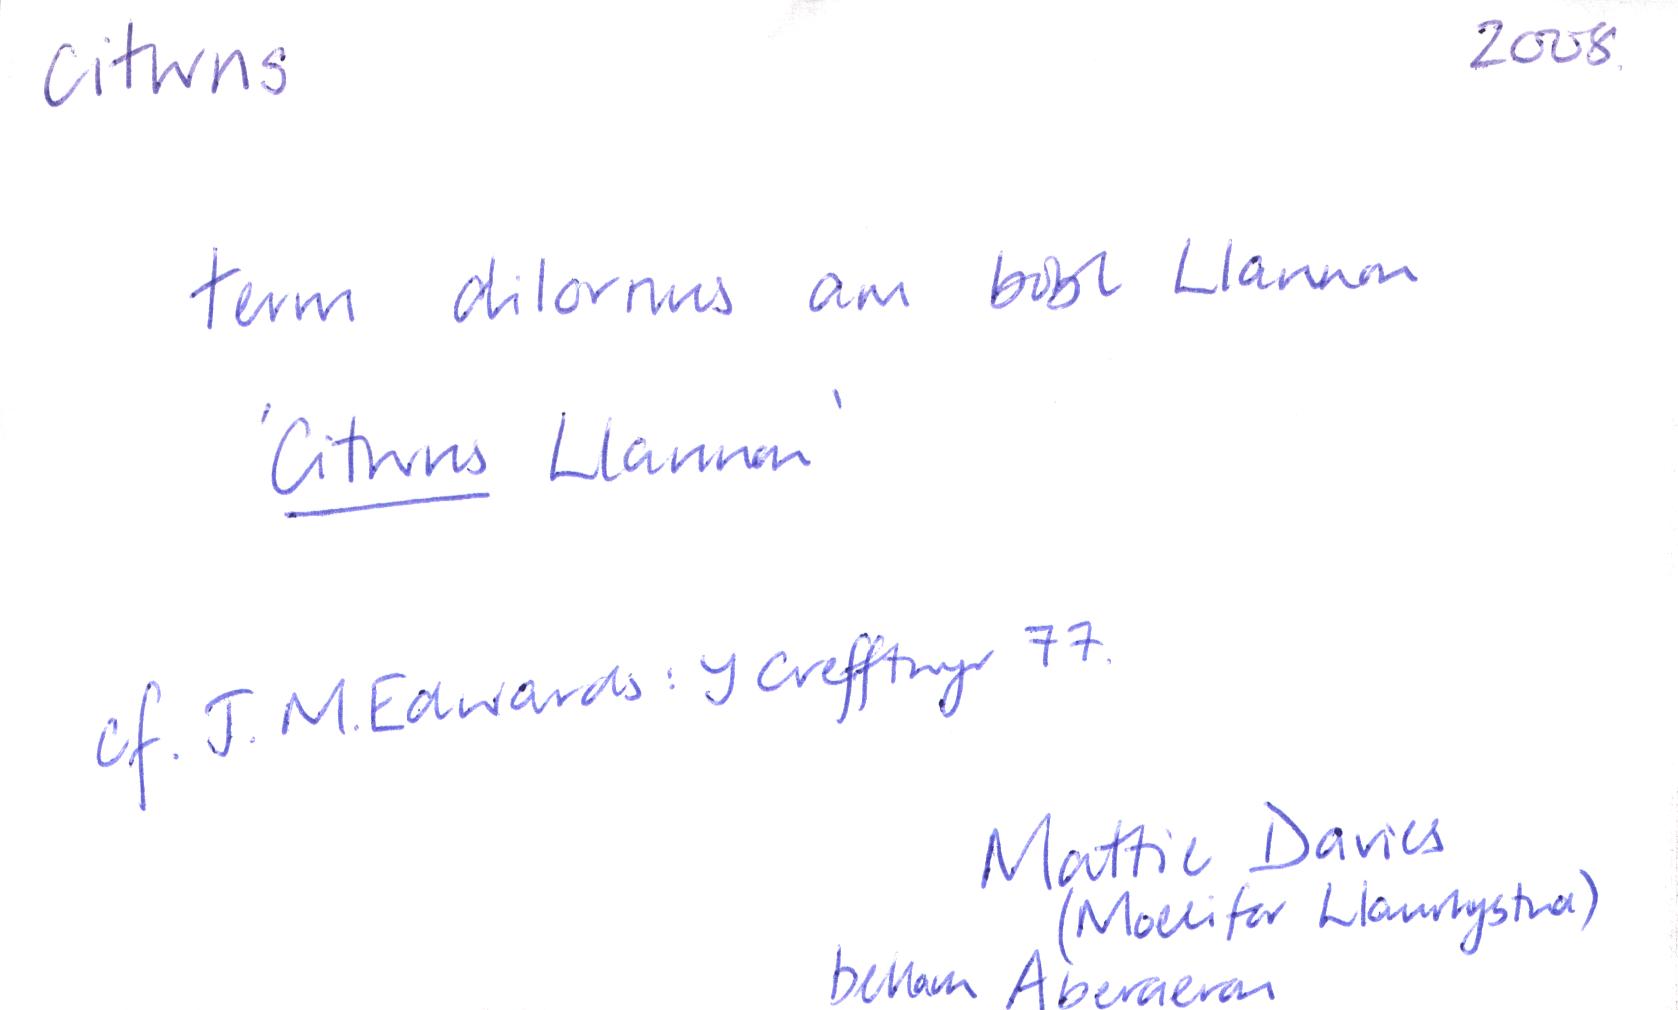 citwns 2008.
term dilornus am bobl Llannon
'Citwns Llannon'
cf. J. M. Edwards: Y Crefftwyr 77.
Mattie Davies
(Moelifor Llanrhystud)
bellach Aberaeron